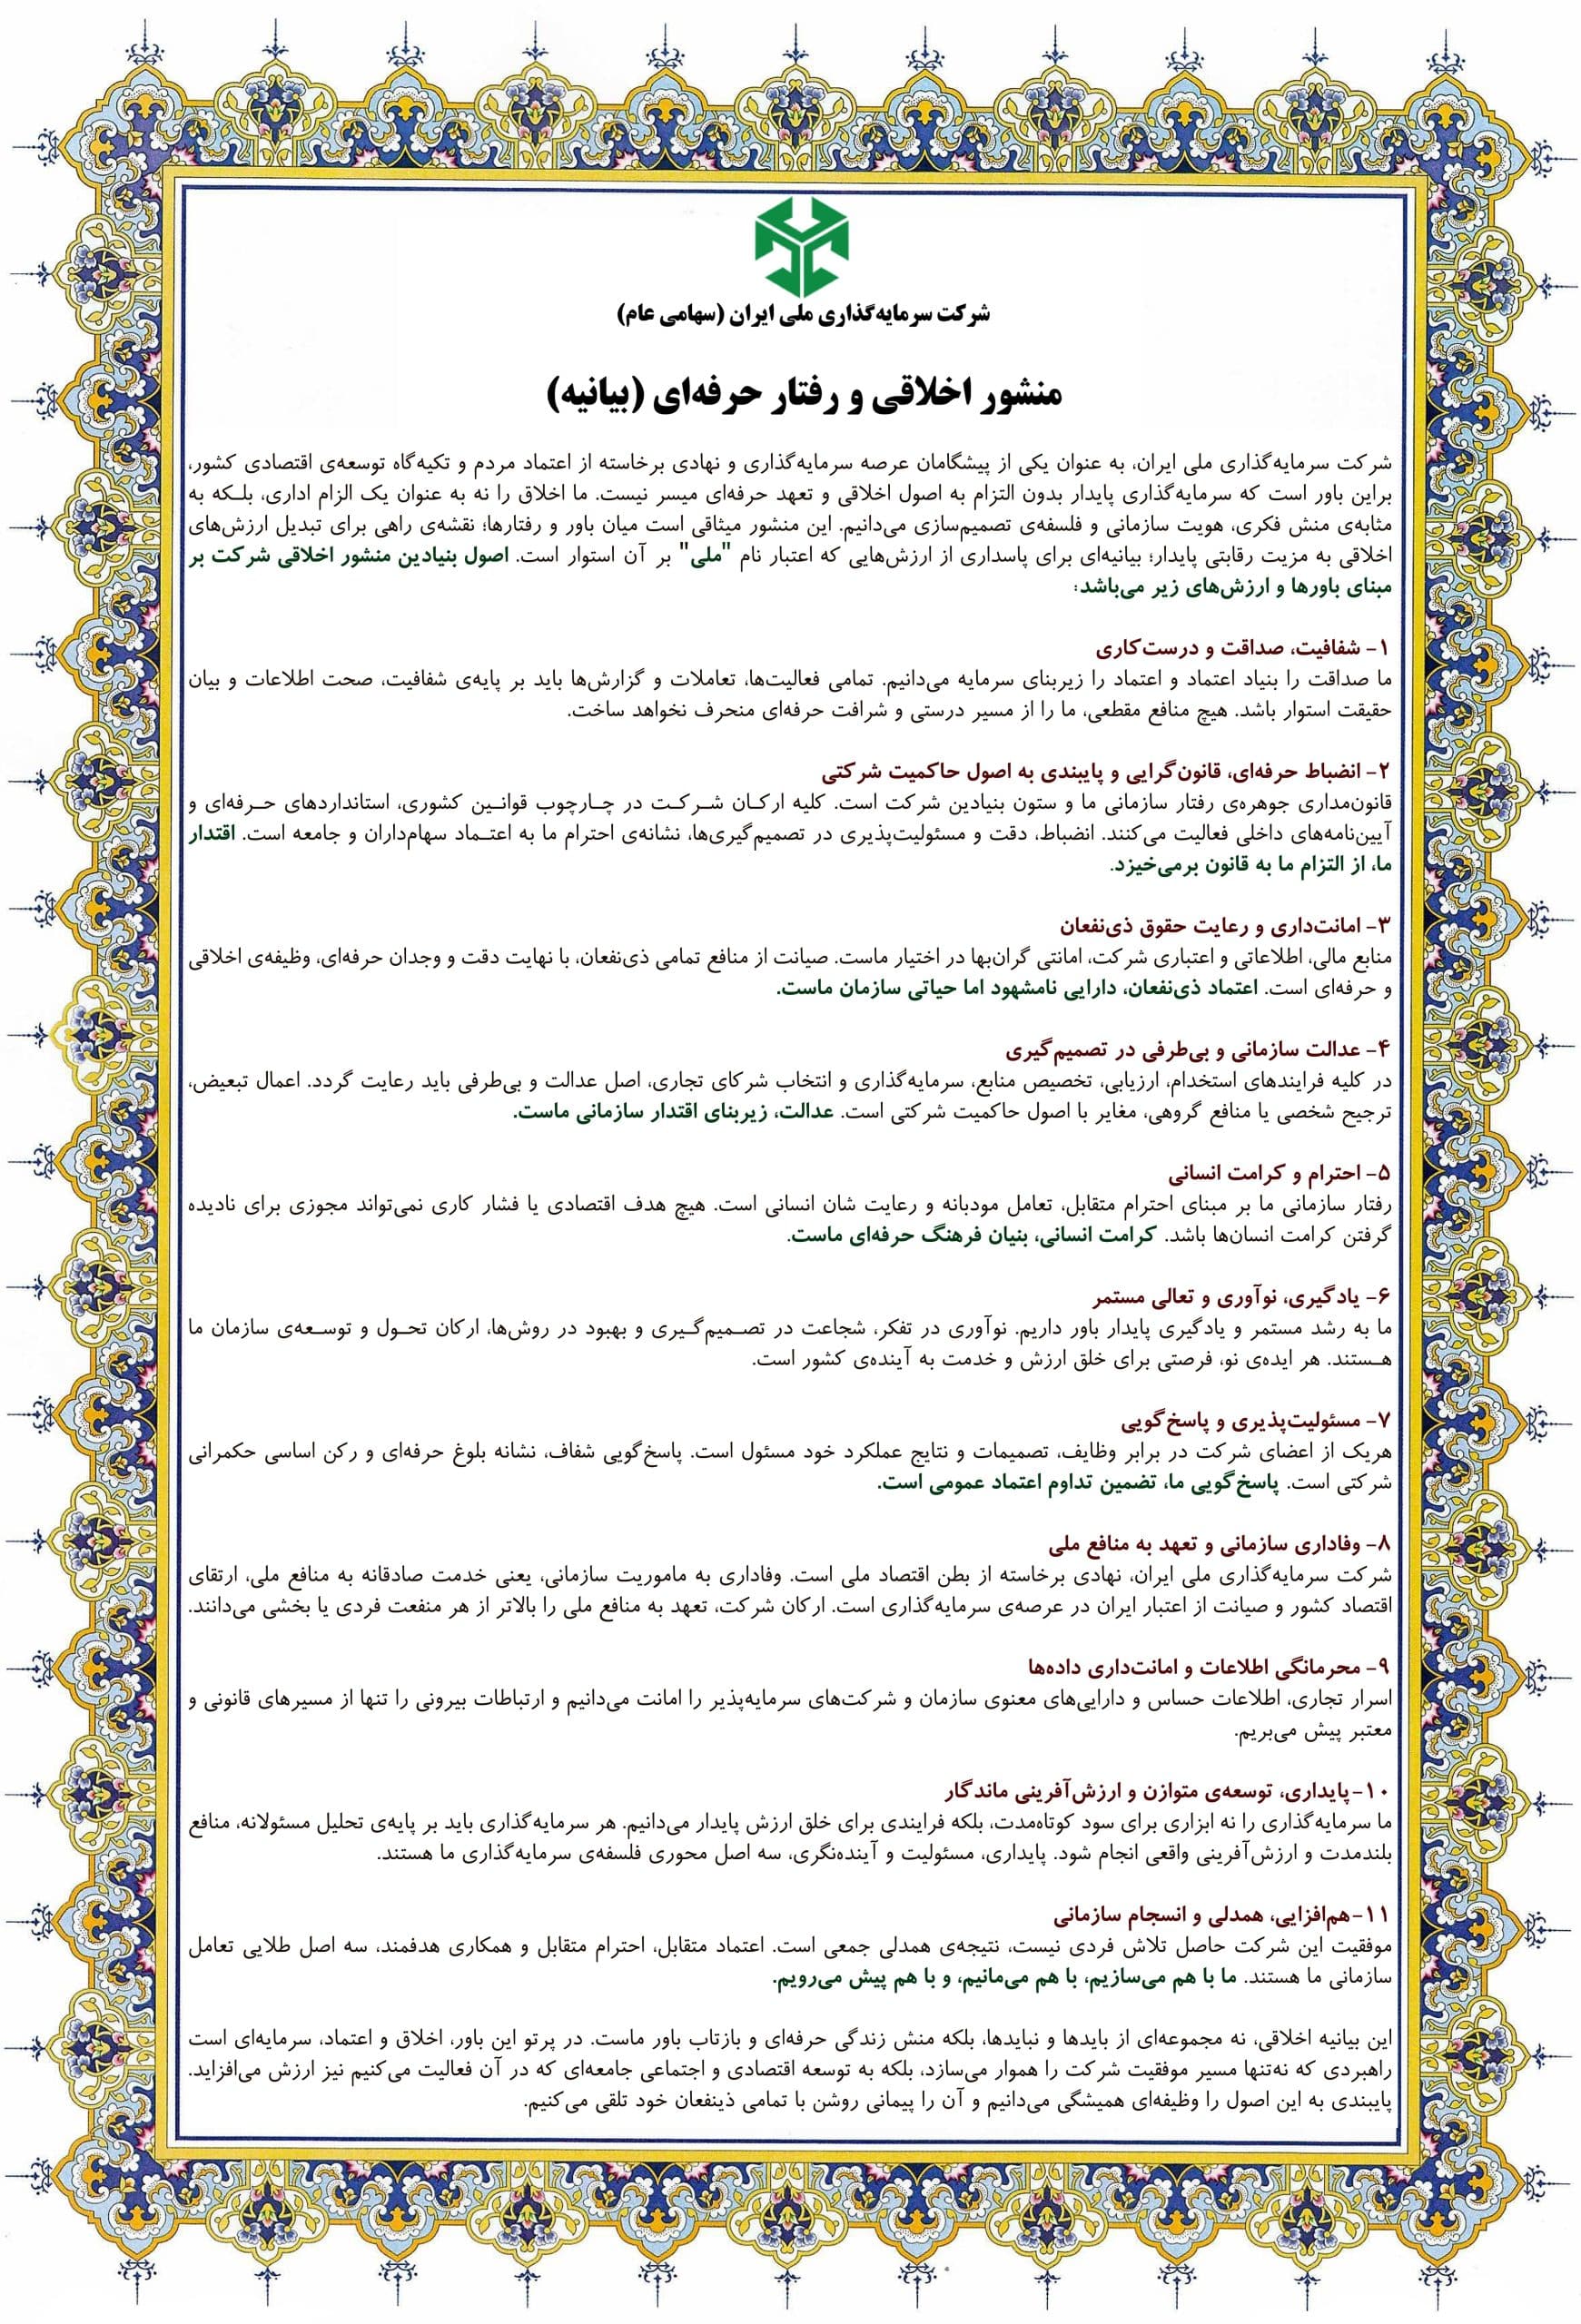 شرکت سرمایه‌گذاری ملی ایران (سهامی عام)
منشور اخلاقی و رفتار حرفه‌ای (بیانیه)
شرکت سرمایه‌گذاری ملی ایران، به عنوان یکی از پیشگامان عرصه سرمایه‌گذاری و نهادی برخاسته از اعتماد مردم و تکیه‌گاه توسعه‌ی اقتصادی کشور،
براین باور است که سرمایه‌گذاری پایدار بدون التزام به اصول اخلاقی و تعهد حرفه‌ای میسر نیست. ما اخلاق را نه به عنوان یک الزام اداری، بلـکه به
مثابه‌ی منش فکری، هویت سازمانی و فلسفه‌ی تصمیم‌سازی می‌دانیم. این منشور میثاقی است میان باور و رفتارها؛ نقشه‌ی راهی برای تبدیل ارزش‌های
اخلاقی به مزیت رقابتی پایدار؛ بیانیه‌ای برای پاسداری از ارزش‌هایی که اعتبار نام "ملی" بر آن استوار است. اصول بنیادین منشور اخلاقی شرکت بر
مبنای باورها و ارزش‌های زیر می‌باشد:
۱- شفافیت، صداقت و درست‌کاری
ما صداقت را بنیاد اعتماد و اعتماد را زیربنای سرمایه می‌دانیم. تمامی فعالیت‌ها، تعاملات و گزارش‌ها باید بر پایه‌ی شفافیت، صحت اطلاعات و بیان
حقیقت استوار باشد. هیچ منافع مقطعی، ما را از مسیر درستی و شرافت حرفه‌ای منحرف نخواهد ساخت.
۲- انضباط حرفه‌ای، قانون‌گرایی و پایبندی به اصول حاکمیت شرکتی
قانون‌مداری جوهره‌ی رفتار سازمانی ما و ستون بنیادین شرکت است. کلیه ارکـان شـرکـت در چـارچوب قوانـین کشوری، استانداردهای حـرفه‌ای و
آیین‌نامه‌های داخلی فعالیت می‌کنند. انضباط، دقت و مسئولیت‌پذیری در تصمیم‌گیری‌ها، نشانه‌ی احترام ما به اعتـماد سهام‌داران و جامعه است. اقتدار
ما، از التزام ما به قانون برمی‌خیزد.
۳- امانت‌داری و رعایت حقوق ذی‌نفعان
منابع مالی، اطلاعاتی و اعتباری شرکت، امانتی گران‌بها در اختیار ماست. صیانت از منافع تمامی ذی‌نفعان، با نهایت دقت و وجدان حرفه‌ای، وظیفه‌ی اخلاقی
و حرفه‌ای است. اعتماد ذی‌نفعان، دارایی نامشهود اما حیاتی سازمان ماست.
۴- عدالت سازمانی و بی‌طرفی در تصمیم‌گیری
در کلیه فرایندهای استخدام، ارزیابی، تخصیص منابع، سرمایه‌گذاری و انتخاب شرکای تجاری، اصل عدالت و بی‌طرفی باید رعایت گردد. اعمال تبعیض،
ترجیح شخصی یا منافع گروهی، مغایر با اصول حاکمیت شرکتی است. عدالت، زیربنای اقتدار سازمانی ماست.
۵- احترام و کرامت انسانی
رفتار سازمانی ما بر مبنای احترام متقابل، تعامل مودبانه و رعایت شان انسانی است. هیچ هدف اقتصادی یا فشار کاری نمی‌تواند مجوزی برای نادیده
گرفتن کرامت انسان‌ها باشد. کرامت انسانی، بنیان فرهنگ حرفه‌ای ماست.
۶- یادگیری، نوآوری و تعالی مستمر
ما به رشد مستمر و یادگیری پایدار باور داریم. نوآوری در تفکر، شجاعت در تصـمیم‌گـیری و بهبود در روش‌ها، ارکان تحـول و توسـعه‌ی سازمان ما
هـستند. هر ایده‌ی نو، فرصتی برای خلق ارزش و خدمت به آینده‌ی کشور است.
۷- مسئولیت‌پذیری و پاسخ‌گویی
هریک از اعضای شرکت در برابر وظایف، تصمیمات و نتایج عملکرد خود مسئول است. پاسخ‌گویی شفاف، نشانه بلوغ حرفه‌ای و رکن اساسی حکمرانی
شرکتی است. پاسخ‌گویی ما، تضمین تداوم اعتماد عمومی است.
۸- وفاداری سازمانی و تعهد به منافع ملی
شرکت سرمایه‌گذاری ملی ایران، نهادی برخاسته از بطن اقتصاد ملی است. وفاداری به ماموریت سازمانی، یعنی خدمت صادقانه به منافع ملی، ارتقای
اقتصاد کشور و صیانت از اعتبار ایران در عرصه‌ی سرمایه‌گذاری است. ارکان شرکت، تعهد به منافع ملی را بالاتر از هر منفعت فردی یا بخشی می‌دانند.
۹- محرمانگی اطلاعات و امانت‌داری داده‌ها
اسرار تجاری، اطلاعات حساس و دارایی‌های معنوی سازمان و شرکت‌های سرمایه‌پذیر را امانت می‌دانیم و ارتباطات بیرونی را تنها از مسیرهای قانونی و
معتبر پیش می‌بریم.
۱۰-پایداری، توسعه‌ی متوازن و ارزش‌آفرینی ماندگار
ما سرمایه‌گذاری را نه ابزاری برای سود کوتاه‌مدت، بلکه فرایندی برای خلق ارزش پایدار می‌دانیم. هر سرمایه‌گذاری باید بر پایه‌ی تحلیل مسئولانه، منافع
بلندمدت و ارزش‌آفرینی واقعی انجام شود. پایداری، مسئولیت و آینده‌نگری، سه اصل محوری فلسفه‌ی سرمایه‌گذاری ما هستند.
۱۱-هم‌افزایی، همدلی و انسجام سازمانی
موفقیت این شرکت حاصل تلاش فردی نیست، نتیجه‌ی همدلی جمعی است. اعتماد متقابل، احترام متقابل و همکاری هدفمند، سه اصل طلایی تعامل
سازمانی ما هستند. ما با هم می‌سازیم، با هم می‌مانیم، و با هم پیش می‌رویم.
این بیانیه اخلاقی، نه مجموعه‌ای از بایدها و نبایدها، بلکه منش زندگی حرفه‌ای و بازتاب باور ماست. در پرتو این باور، اخلاق و اعتماد، سرمایه‌ای است
راهبردی که نه‌تنها مسیر موفقیت شرکت را هموار می‌سازد، بلکه به توسعه اقتصادی و اجتماعی جامعه‌ای که در آن فعالیت می‌کنیم نیز ارزش می‌افزاید.
پایبندی به این اصول را وظیفه‌ای همیشگی می‌دانیم و آن را پیمانی روشن با تمامی ذینفعان خود تلقی می‌کنیم.